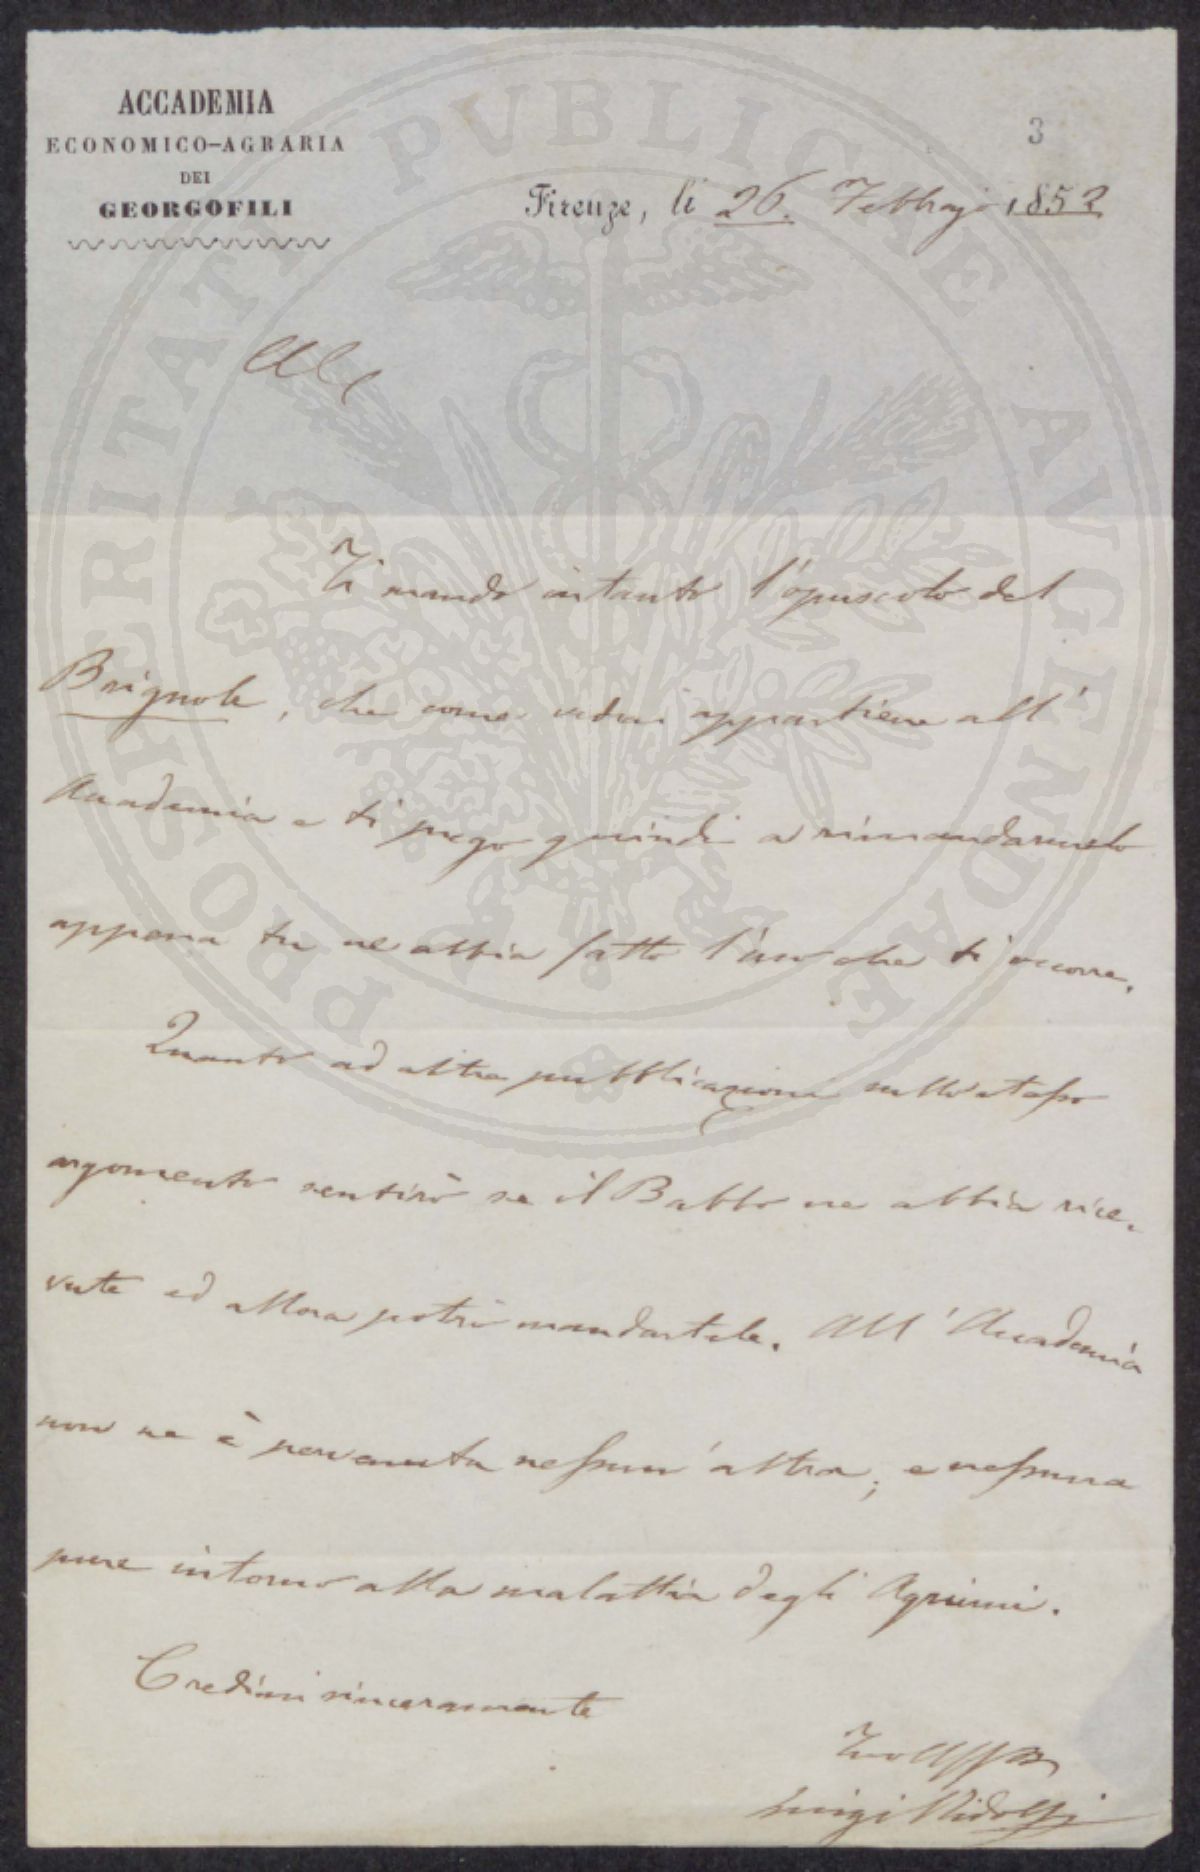 ACCADEMIA
ECONOMICO-AGRARIA
DEI
GEORGOFILI
3
Firenze, li 26. Febbrajo 1852
PROSPERITATI PVBLICAE AVGENDAE
Ti mando intanto l'opuscolo del
Brignole, che come vedrai appartiene all'
Accademia e ti prego quindi a rimandarmelo
appena tu ne abbia fatto l'uso che ti occorre.
Quanto ad altre pubblicazioni sullo stesso
argomento sentirò se il Babbo ne abbia rice-
vute ed allora potrò mandartele. All'Accademia
non ne è pervenuta nessun'altra; e nessuna
pure intorno alla malattia degli Agrumi.
Credimi sinceramente
Tuo Affmo
Luigi Ridolfi